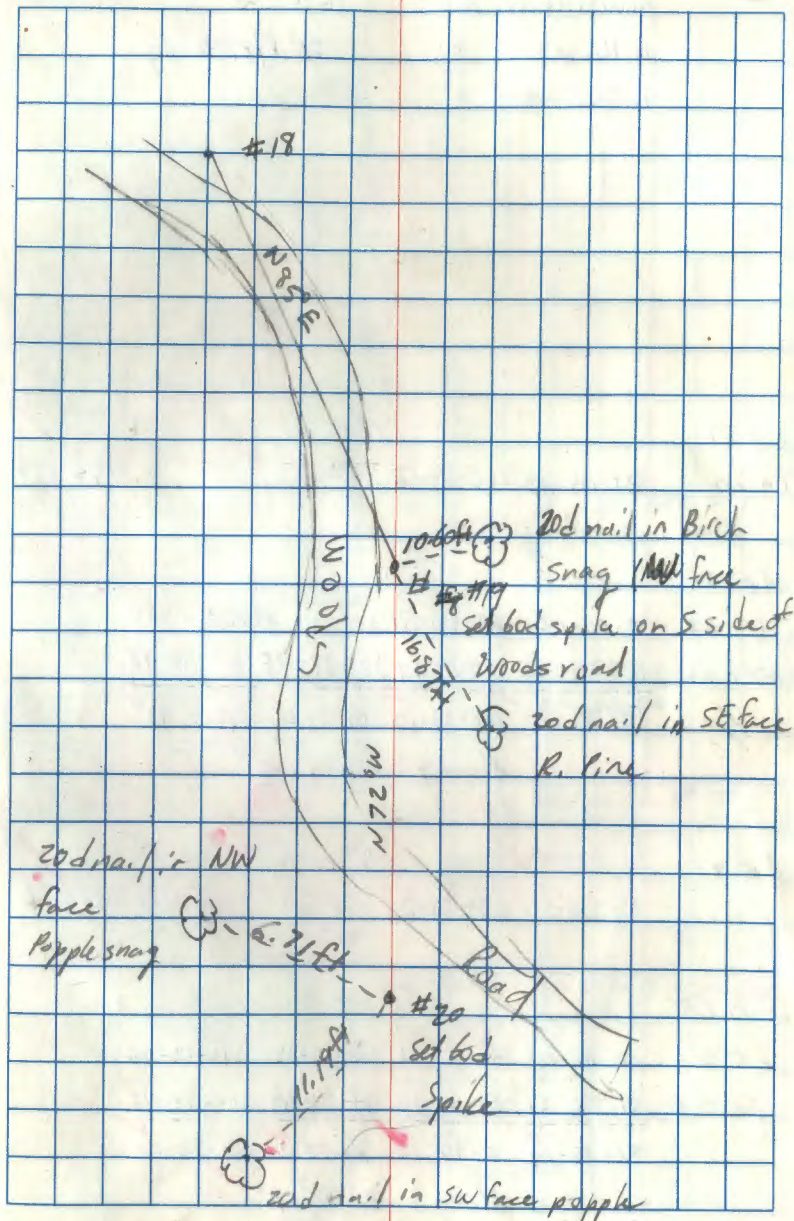 #18
N85°E
10.60ft
20d nail in Birch
snag NW face
#19
set 60d spike on S side of
woods road
16.87ft
20d nail in SE face
R. Pine
Woods
N72°W
20d nail in NW
face
Popple snag
6.71ft
Road
#20
set 60d
Spike
11.19ft
20d nail in SW face popple